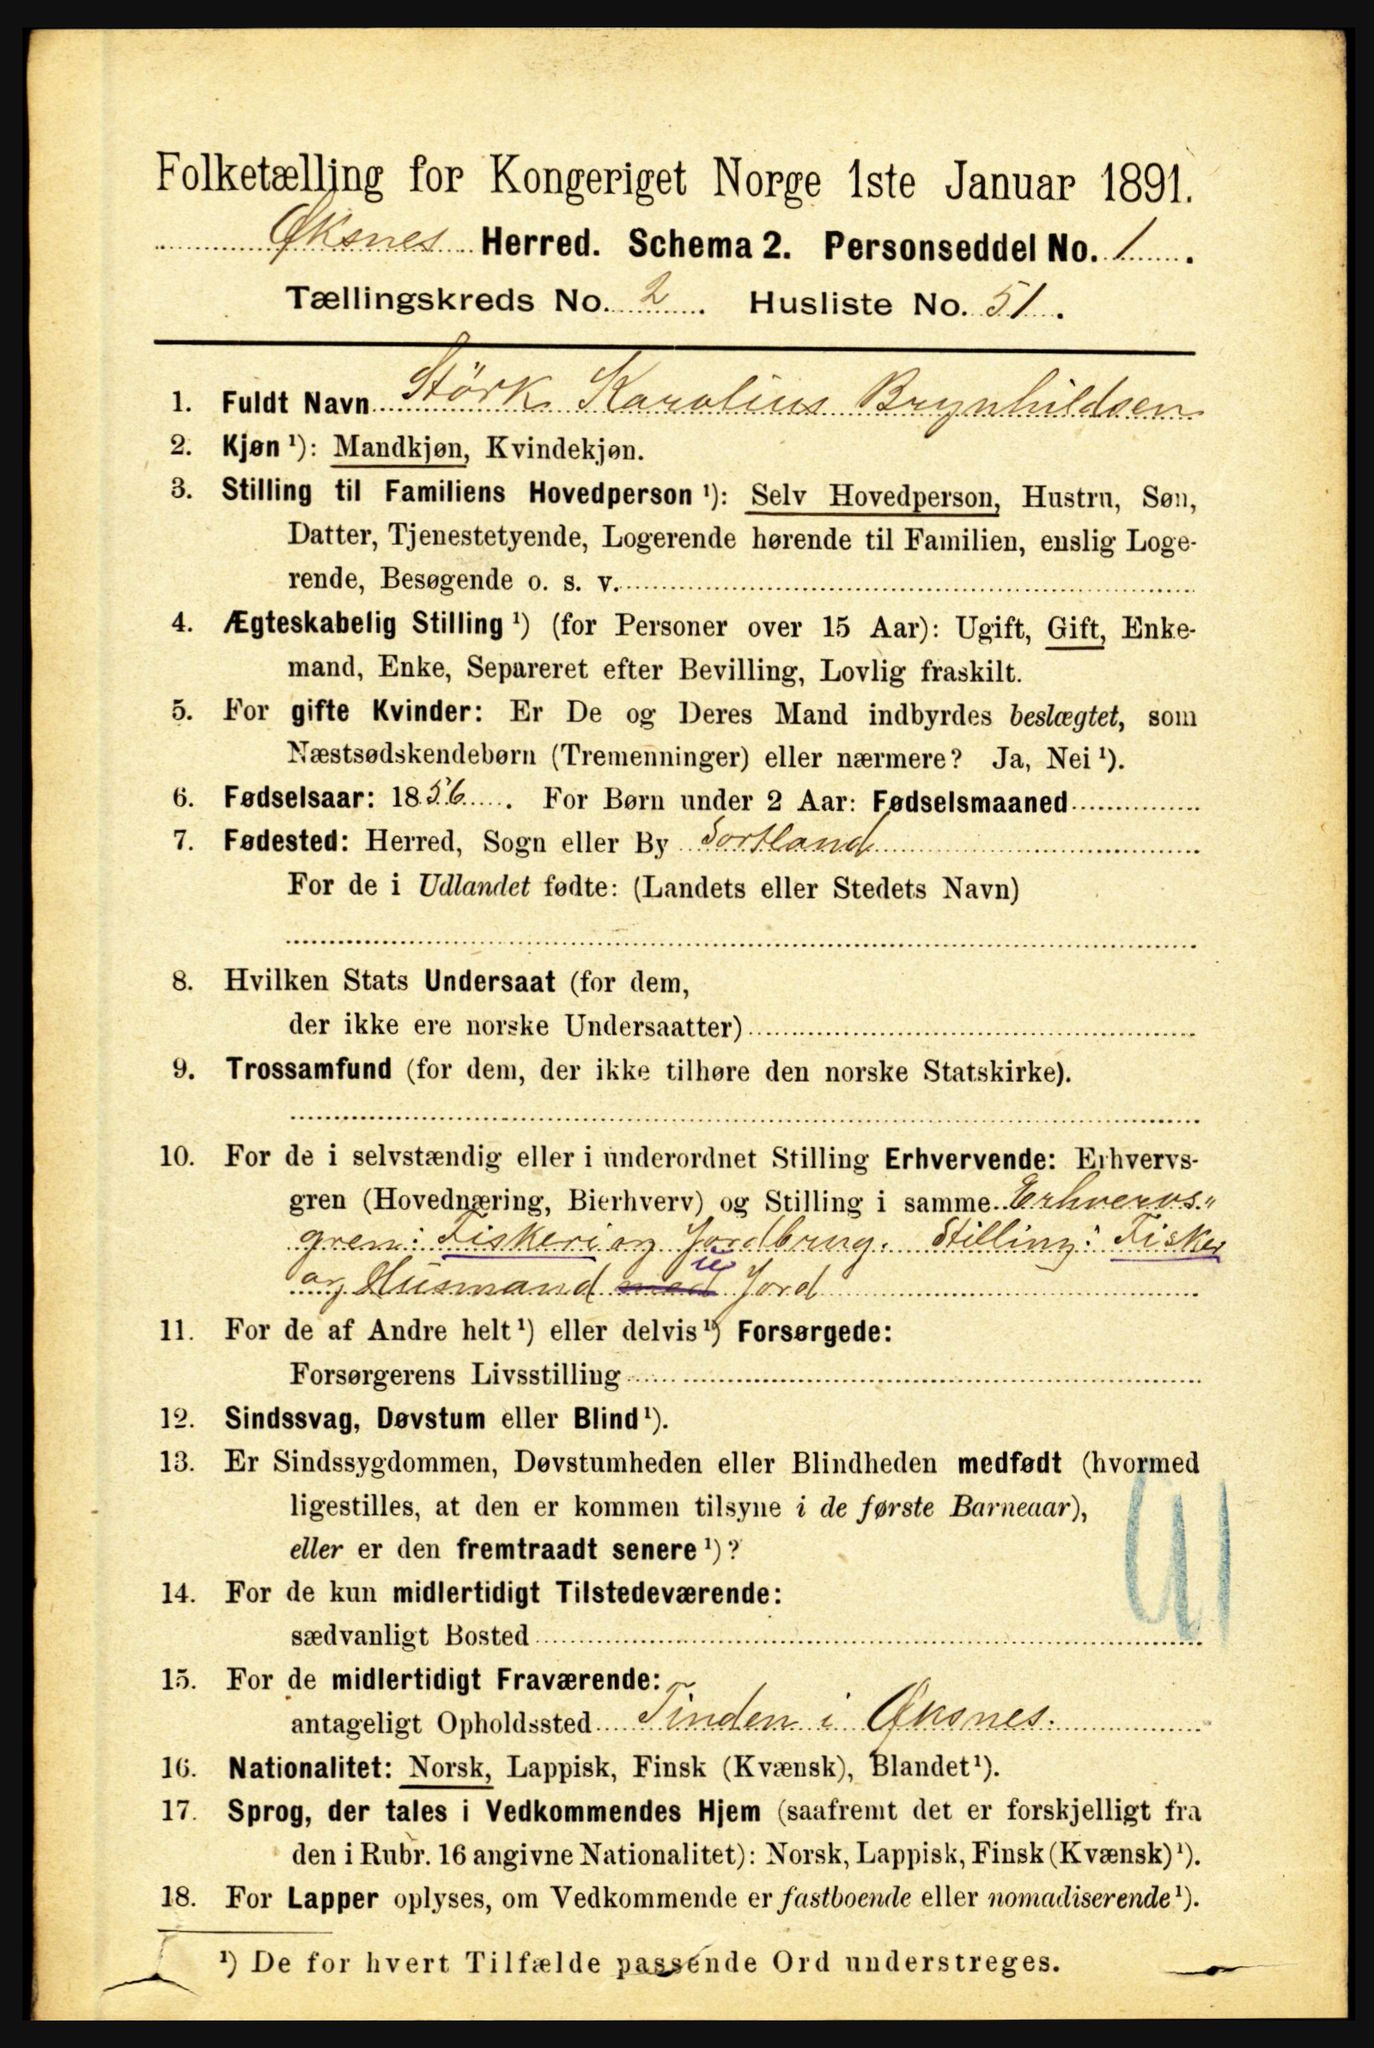 Folketælling for Kongeriget Norge 1ste Januar 1891.
Øksnes Herred. Schema 2. Personseddel No. 1.
Tællingskreds No. 2. Husliste No. 51.
1. Fuldt Navn Störk Karolius Brynhildsen
2. Kjøn ¹): Mandkjøn, Kvindekjøn.
3. Stilling til Familiens Hovedperson ¹): Selv Hovedperson, Hustru, Søn,
Datter, Tjenestetyende, Logerende hørende til Familien, enslig Loge-
rende, Besøgende o. s. v.
4. Ægteskabelig Stilling ¹) (for Personer over 15 Aar): Ugift, Gift, Enke-
mand, Enke, Separeret efter Bevilling, Lovlig fraskilt.
5. For gifte Kvinder: Er De og Deres Mand indbyrdes beslægtet, som
Næstsødskendebørn (Tremenninger) eller nærmere? Ja, Nei ¹).
6. Fødselsaar: 1856. For Børn under 2 Aar: Fødselsmaaned
7. Fødested: Herred, Sogn eller By Sortland
For de i Udlandet fødte: (Landets eller Stedets Navn)
8. Hvilken Stats Undersaat (for dem,
der ikke ere norske Undersaatter)
9. Trossamfund (for dem, der ikke tilhøre den norske Statskirke).
10. For de i selvstændig eller i underordnet Stilling Erhvervende: Erhvervs-
gren (Hovednæring, Bierhverv) og Stilling i samme Erhvervs-
gren: Fiskeri og Jordbrug. Stilling: Fisker
og Husmand med Jord
11. For de af Andre helt ¹) eller delvis ¹) Forsørgede:
Forsørgerens Livsstilling
12. Sindssvag, Døvstum eller Blind ¹).
13. Er Sindssygdommen, Døvstumheden eller Blindheden medfødt (hvormed
ligestilles, at den er kommen tilsyne i de første Barneaar),
eller er den fremtraadt senere ¹)?
14. For de kun midlertidigt Tilstedeværende:
sædvanligt Bosted
15. For de midlertidigt Fraværende:
antageligt Opholdssted Tinden i Øksnes.
16. Nationalitet: Norsk, Lappisk, Finsk (Kvænsk), Blandet ¹).
17. Sprog, der tales i Vedkommendes Hjem (saafremt det er forskjelligt fra
den i Rubr. 16 angivne Nationalitet): Norsk, Lappisk, Finsk (Kvænsk) ¹).
18. For Lapper oplyses, om Vedkommende er fastboende eller nomadiserende ¹).
¹) De for hvert Tilfælde passende Ord understreges.